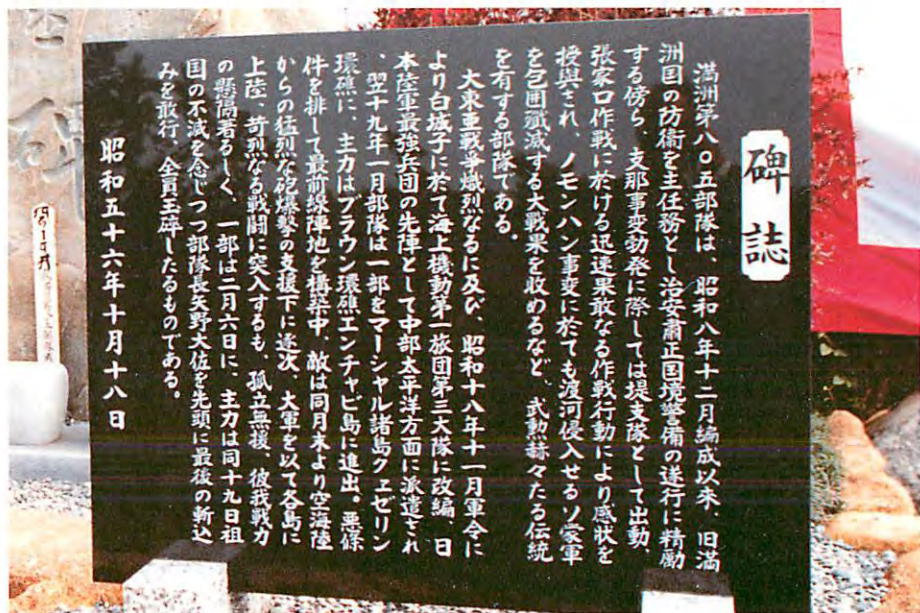 碑誌
満洲第八〇五部隊は、昭和八年十二月編成以来、旧満
洲国の防衛を主任務とし治安粛正国境警備の遂行に精励
する傍ら、支那事変勃発に際しては堤支隊として出動、
張家口作戦に於ける迅速果敢なる作戦行動により感状を
授與され、ノモンハン事変に於ても渡河侵入せるソ家軍
を包囲殲滅する大戦果を收めるなど、武勲赫々たる伝統
を有する部隊である。
大東亜戦爭熾烈なるに及び、昭和十八年十一月軍令に
より白城子に於て海上機動第一旅団第三大隊に改編、日
本陸軍最強兵団の先陣として中部太平洋方面に派遣され
、翌十九年一月部隊は一部をマーシャル諸島クェゼリン
環礁に、主力はブラウン環礁エンチャビ島に進出。悪條
件を排して最前線陣地を構築中、敵は同月末より空海陸
からの猛烈な砲爆撃の支援下に逐次、大軍を以て各島に
上陸、苛烈なる戦闘に突入するも、孤立無援、彼我戦力
の懸隔著るしく、一部は二月六日に、主力は同十九日祖
国の不滅を念じつつ部隊長矢野大佐を先頭に最後の斬込
みを敢行、全員玉碎したるものである。
昭和五十六年十月十八日